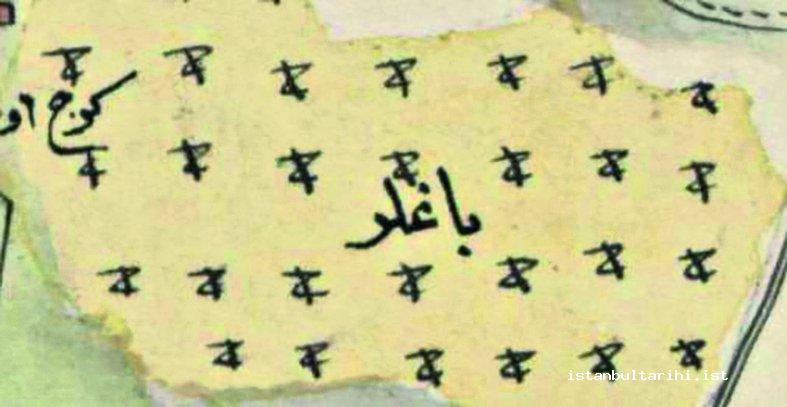 كوج او
باغلر
istanbultarihi.ist